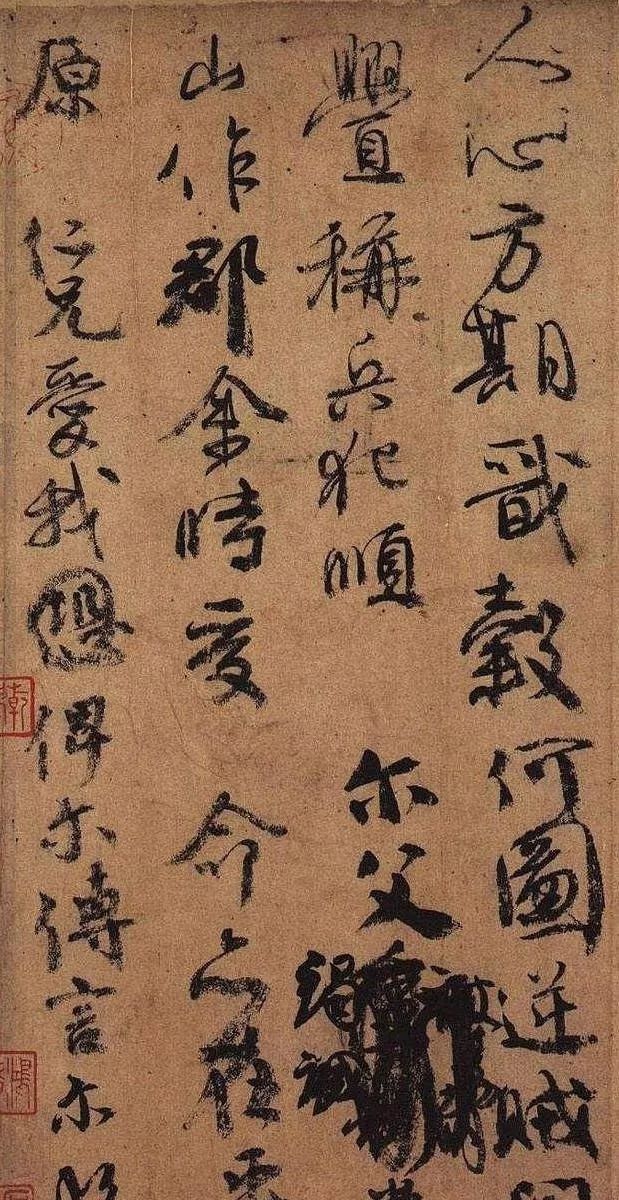 人心方期戩穀何圖逆賊
釁稱兵犯順 尔父竭誠
山作郡余時受 命亦在平
原 仁兄愛我恐俾尔傳言尔